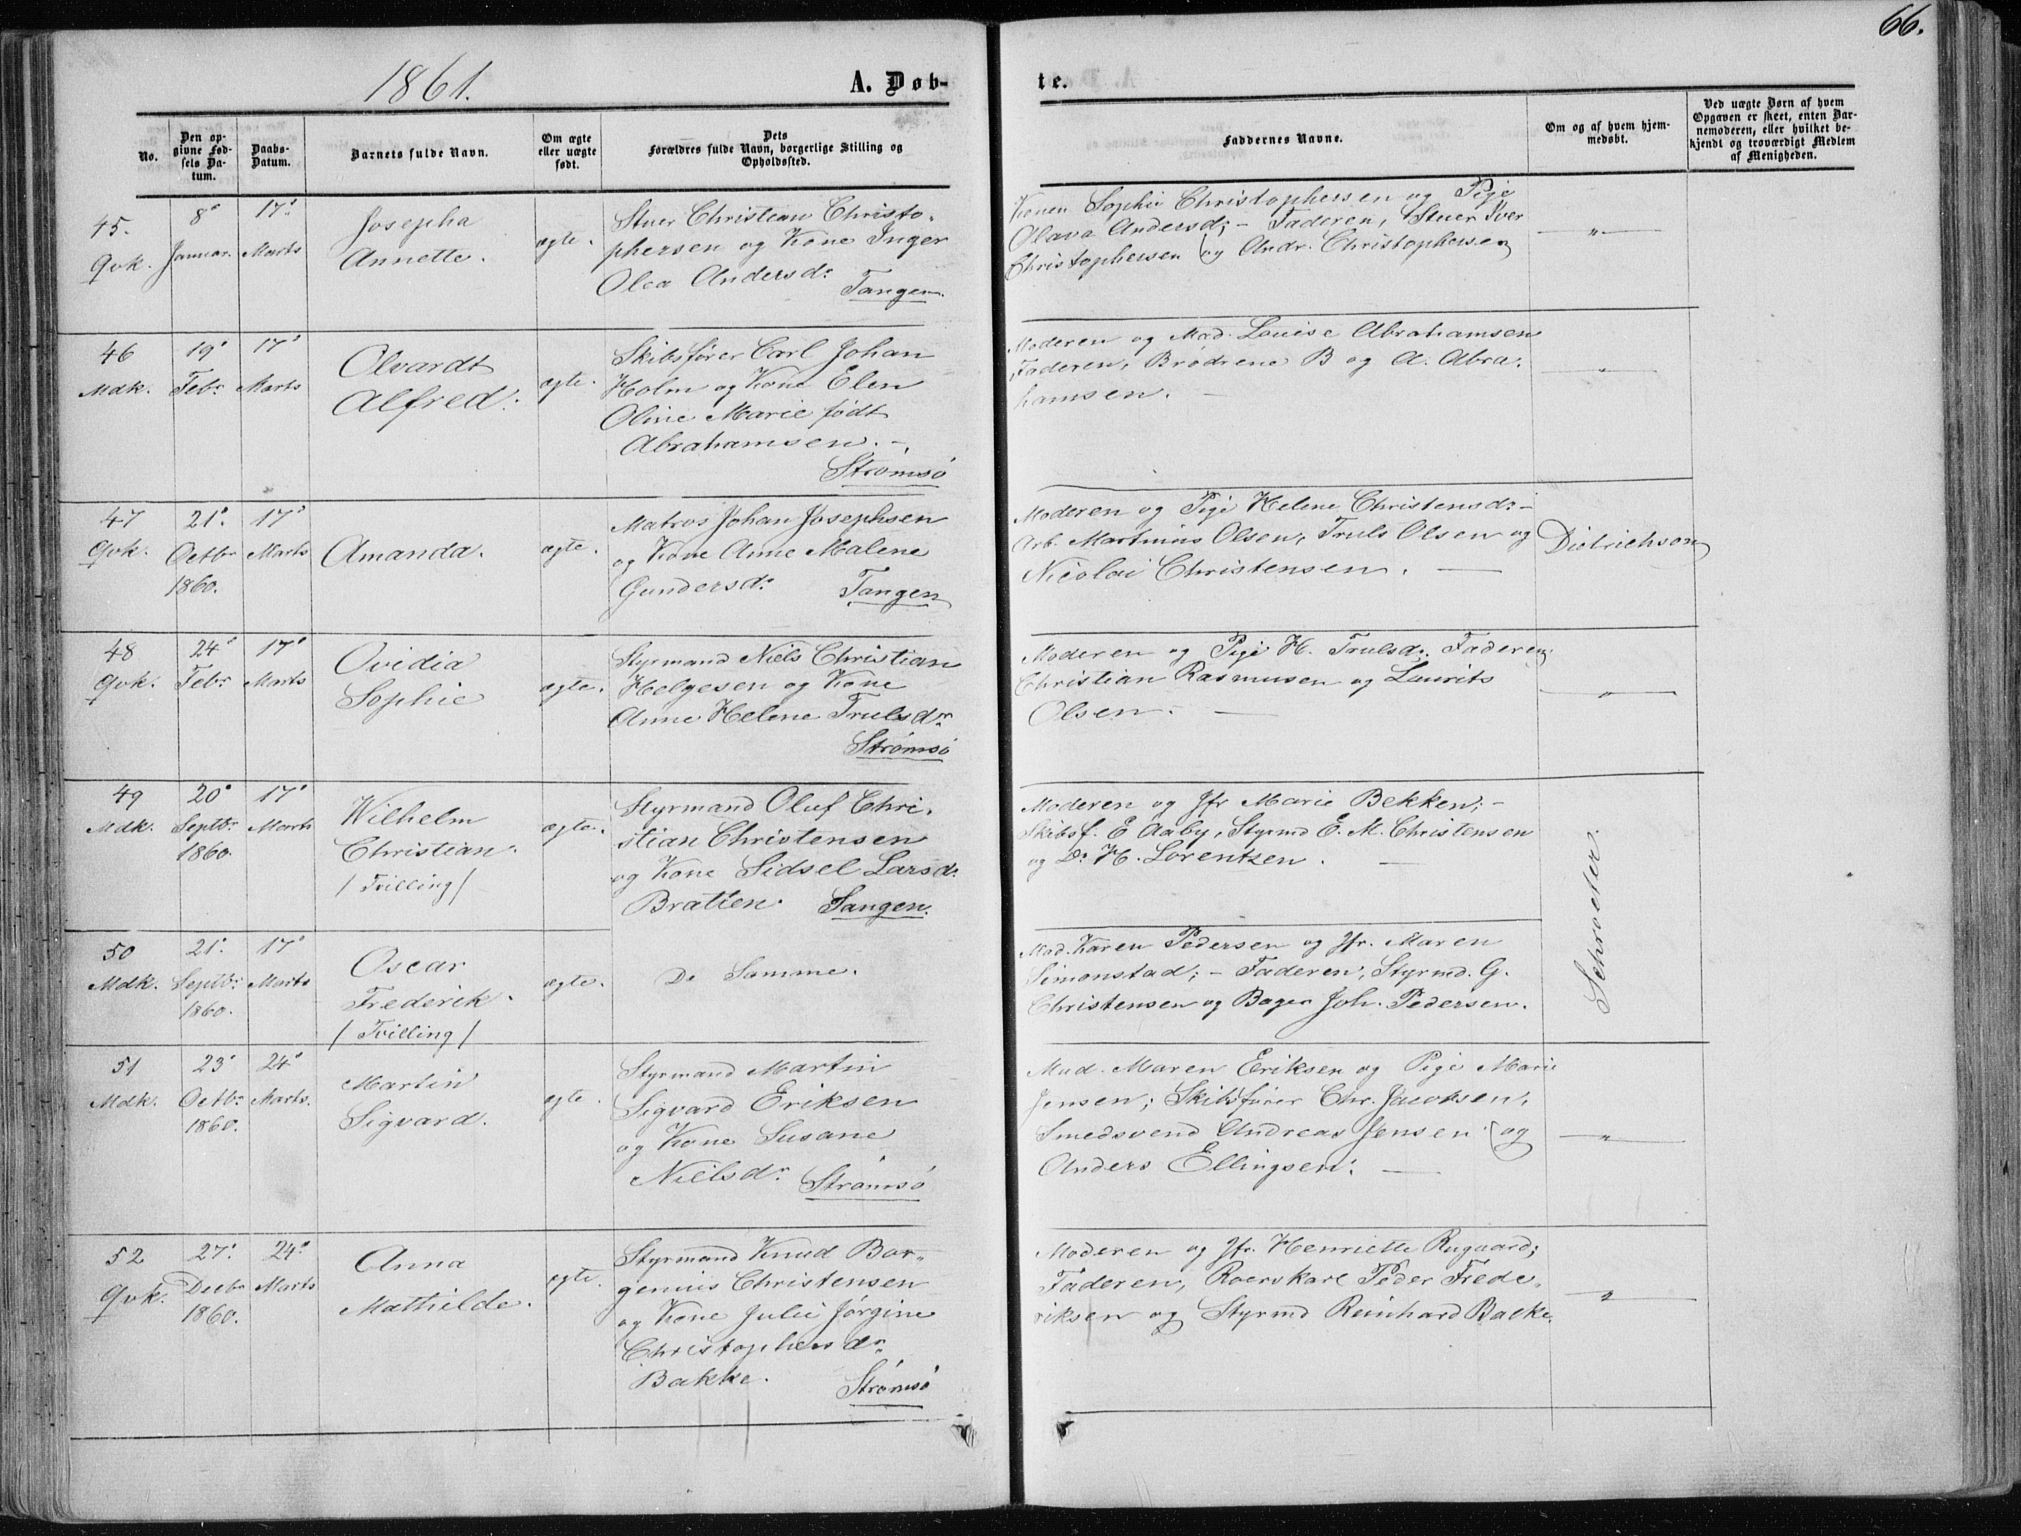 66.
1861.
A. Døb-
te.
No.
Den op-
givne Fød-
sels Da-
tum.
Daabs-
Datum.
Barnets fulde Navn.
Om ægte
eller uægte
født.
Dets
Forældres fulde Navn, borgerlige Stilling og
Opholdssted.
Faddernes Navne.
Om og af hvem hjem-
medøbt.
Ved uægte Børn af hvem
Opgaven er skeet, enten Bar-
nemoderen, eller hvilket be-
kjendt og troværdigt Medlem
af Menigheden.
45.
Qvk.
8de
Januar.
17de
Marts
Josepha
Annette.
ægte.
Stuer Christian Christo-
phersen og Kone Inger
Olea Andersdr
Tangen.
Konen Sophie Christophersen og Pige
Olava Andersd; - Faderen, Stuer Iver
Christophersen og Andr. Christophersen
- " -
46
Mdk.
19de
Febr.
17de
Marts
Olvardt
Alfred.
ægte.
Skibsfører Carl Johan
Holm og Kone Elen
Oline Marie født
Abrahamsen. -
Strømsø
Moderen og Mad. Louise Abrahamsen
Faderen, Brødrene B og A. Abra-
hamsen. -
- " -
47
Qvk.
21de
Octbr
1860.
17de
Marts
Amanda.
ægte.
Matros Johan Josephsen
og Kone Anne Malene
Gundersdr
Tangen
Moderen og Pige Helene Christensdr -
Arb. Martinius Olsen, Truls Olsen og
Nicolai Christensen. -
Dietrichson
48
Qvk.
24de
Febr
17de
Marts
Ovidia
Sophie
ægte.
Styrmand Niels Christian
Helgesen og Kone
Anne Helene Trulsdr
Strømsø
Moderen og Pige H. Trulsd; Faderen
Christian Rasmusen og Laurits
Olsen. -
- " -
49
Mdk.
20de
Septbr
1860.
17de
Marts
Wilhelm
Christian.
/ Tvilling /
ægte.
Styrmand Oluf Chri-
stian Christensen
og Kone Sidsel Larsdr
Bratien. Tangen.
Moderen og Jfr Marie Bekken; -
Skibsf. E Aaby, Styrmd E. M. Christensen
og Do H. Lorentzen. -
Schroeter.
50
Mdk.
21de
Septbr
1860.
17de
Marts
Oscar
Frederik.
/ Tvilling /
ægte.
De Samme.
Mad. Karen Pedersen og Jfr. Maren
Simonstad; - Faderen, Styrmd. G.
Christensen og Bager Joh. Pedersen.
51
Mdk.
23de
Octbr
1860.
24de
Marts.
Martin
Sigvard.
ægte.
Styrmand Martin
Sigvard Eriksen
og Kone Susane
Nielsdr Strømsø
Mad. Maren Eriksen og Pige Marie
Jensen; Skibsfører Chr. Jacobsen,
Smedsvend Andreas Jensen og
Anders Ellingsen. -
- " -
52
Qvk.
27de
Decbr
1860.
24de
Marts
Anna
Mathilde.
ægte.
Styrmand Knud Bor-
genius Christensen
og Kone Julie Jørgine
Christophersdr
Bakke. Strømsø
Moderen og Jfr. Henriette Rugaard;
Faderen, Roerskarl Peder Frede-
riksen og Styrmd Reinhard Bakke.
- " -